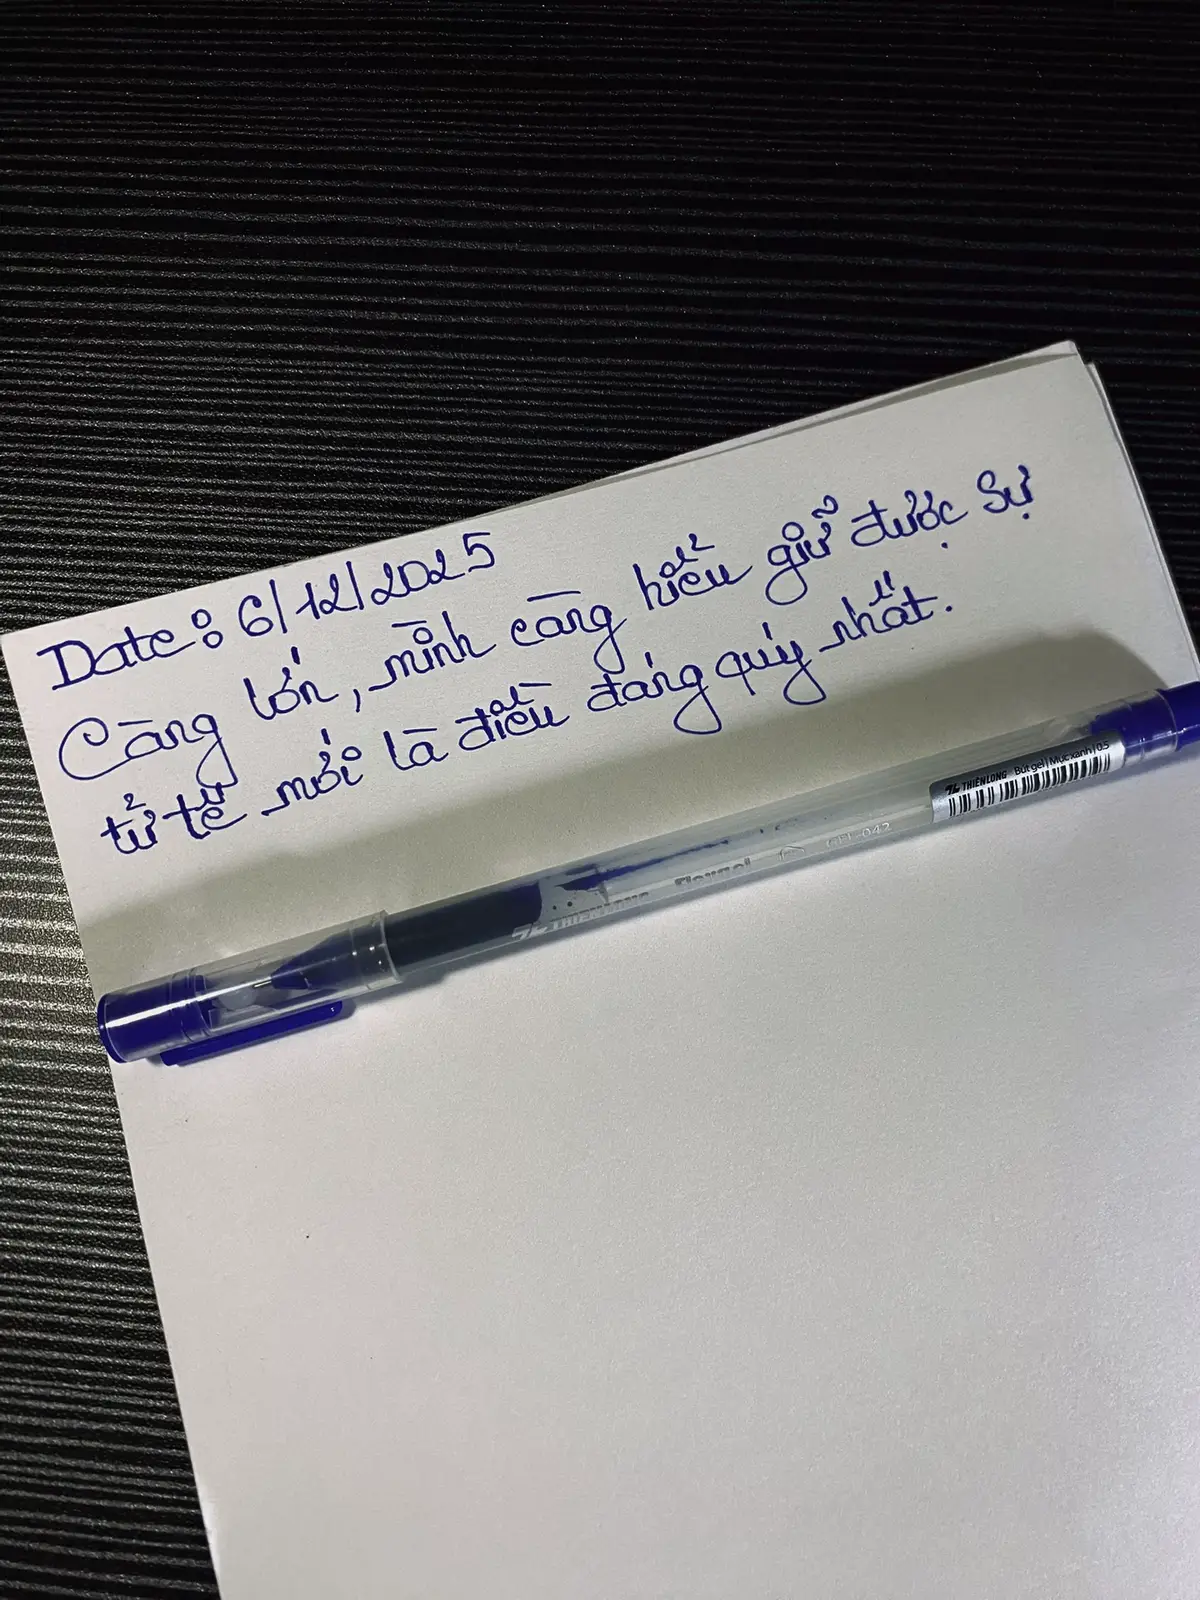 Date: 6/12/2025
Càng lớn, mình càng hiểu giữ được sự
tử tế mới là điều đáng quý nhất.
THIÊN LONG Bút gel | Mực xanh | 0.5
THIEN LONG Flexgel GEL-042